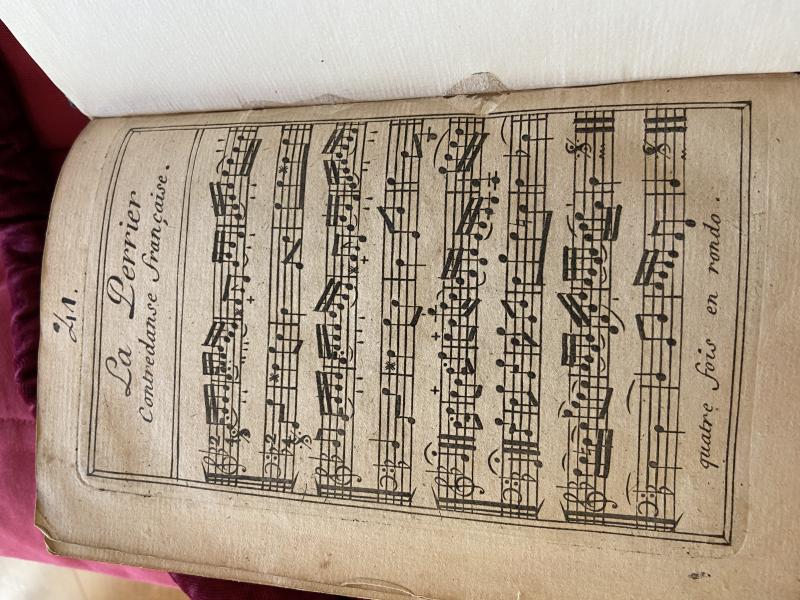 41.
La Perrier
Contredanse française.
quatre fois en rondo.